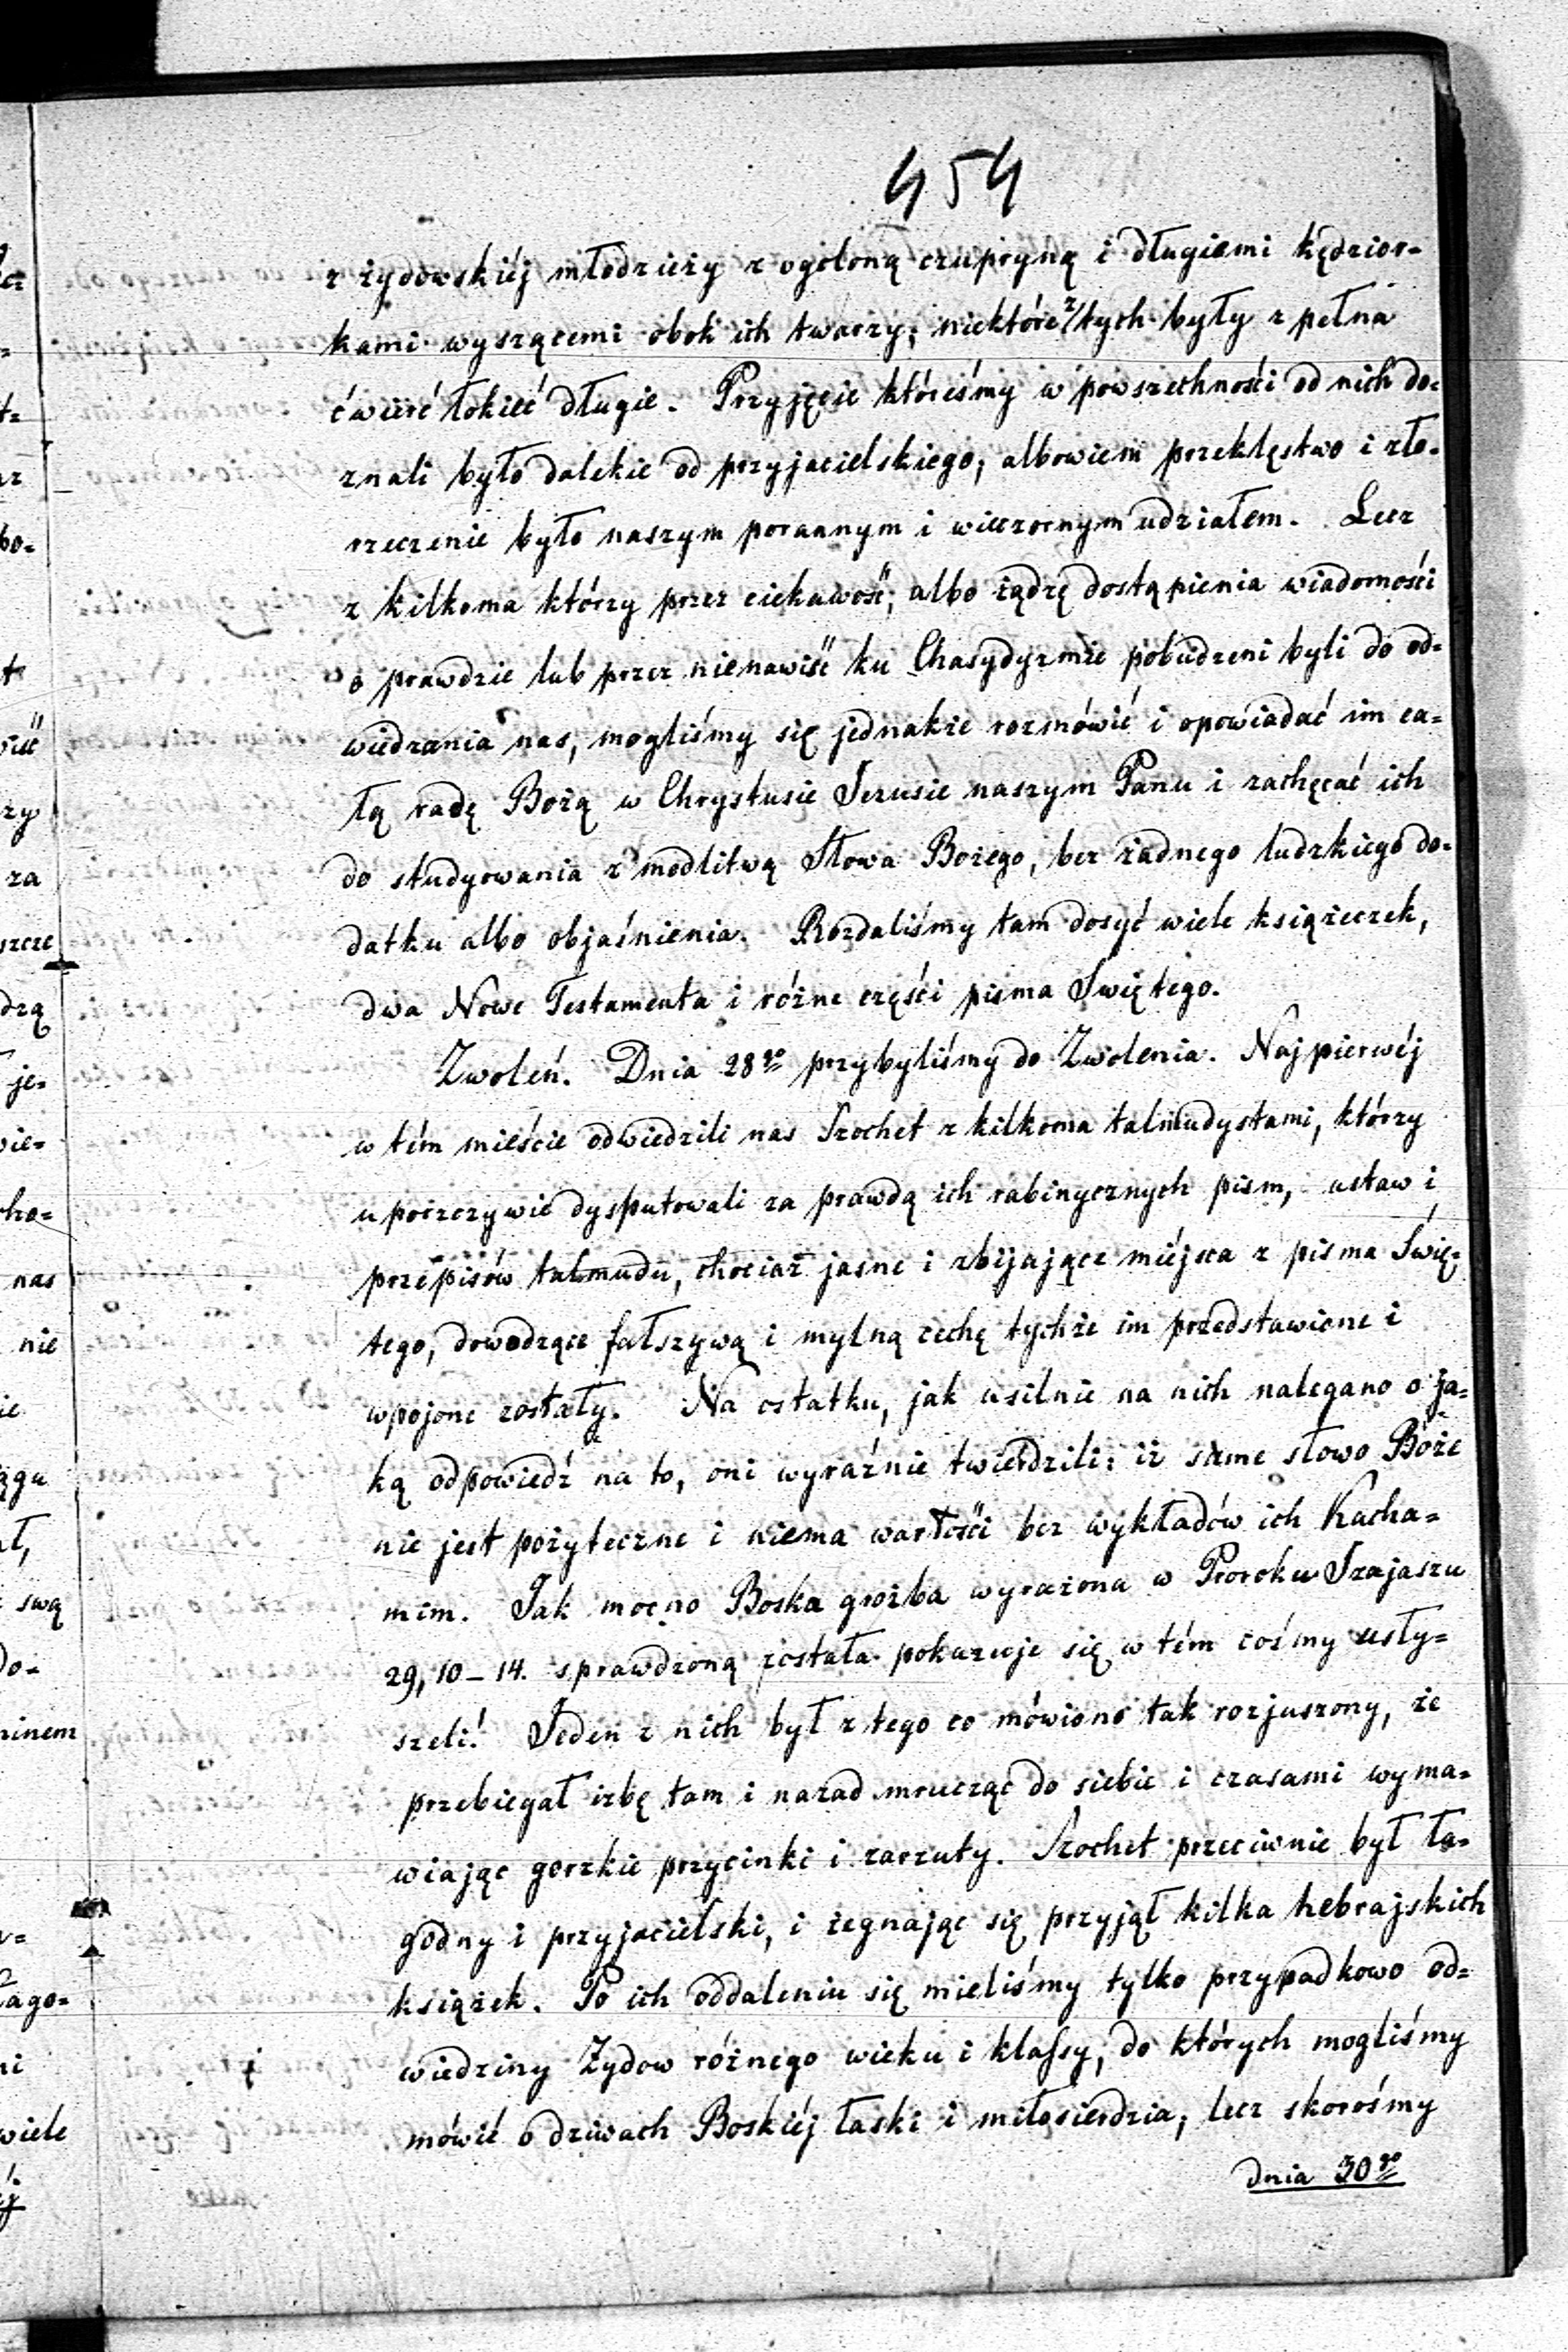 454
z żydowskiéj młodzieży z ogoloną czupryną i długiemi kędzior=
kami wyszącemi obok ich twarzy; niektóre z tych były z pełna
ćwierć łokieć długie. Przyjęcie któreśmy w powszechności od nich do=
znali było dalekie od przyjacielskiego, albowiem przeklęstwo i zło=
rzeczenie było naszym porannym i wieczornym udziałem. Lecz
z kilkoma którzy przez ciekawość, albo żądzę dostąpienia wiadomości
o prawdzie lub przez nienawiść ku Chasydyzmie pobudzeni byli do od=
wiedzania nas, mogliśmy się jednakże rozmówić i opowiadać im ca=
łą radę Bożą w Chrystusie Jezusie naszym Panu i zachęcać ich
do studyowania z modlitwą Słowa Bożego, bez żadnego ludzkiego do=
datku albo objaśnienia. Rozdaliśmy tam dosyć wiele książeczek,
dwa Nowe Testamenta i różne części pisma Swiętego.
Zwoleń. Dnia 28go przybyliśmy do Zwolenia. Najpierwéj
w tém mieście odwiedzili nas Szochet z kilkoma talmudystami, którzy
uporczywie dysputowali za prawdą ich rabinycznych pism, ustaw i
przepisów talmudu, chociaż jasne i zbijające miéjsca z pisma Świę=
tego, dowodzące fałszywą i mylną cechę tychże im przedstawione i
wpojone zostały. Na ostatku, jak usilnie na nich nalegano o ja=
ką odpowiedź na to, oni wyraźnie twierdzili: iż same słowo Boże
nie jest pożyteczne i niema wartości bez wykładów ich Kacha=
mim. Jak mocno Boska groźba wyrażona w Proroku Izajaszu
29, 10–14. sprawdzoną została pokazuje się w tém cośmy usły=
szeli! Jeden z nich był z tego co mówiono tak rozjuszony, że
przebiegał izbę tam i nazad mrucząc do siebie i czasami wyma=
wiając gorzkie przycinki i zarzuty. Szochet przeciwnie był ła=
godny i przyjacielski, i żegnając się przyjął kilka hebrajskich
książek. Po ich oddaleniu się mieliśmy tylko przypadkowo od=
wiedziny Zydow różnego wieku i klassy, do których mogliśmy
mówić o dziwach Boskiéj łaski i miłosierdzia, lecz skorośmy
dnia 30go